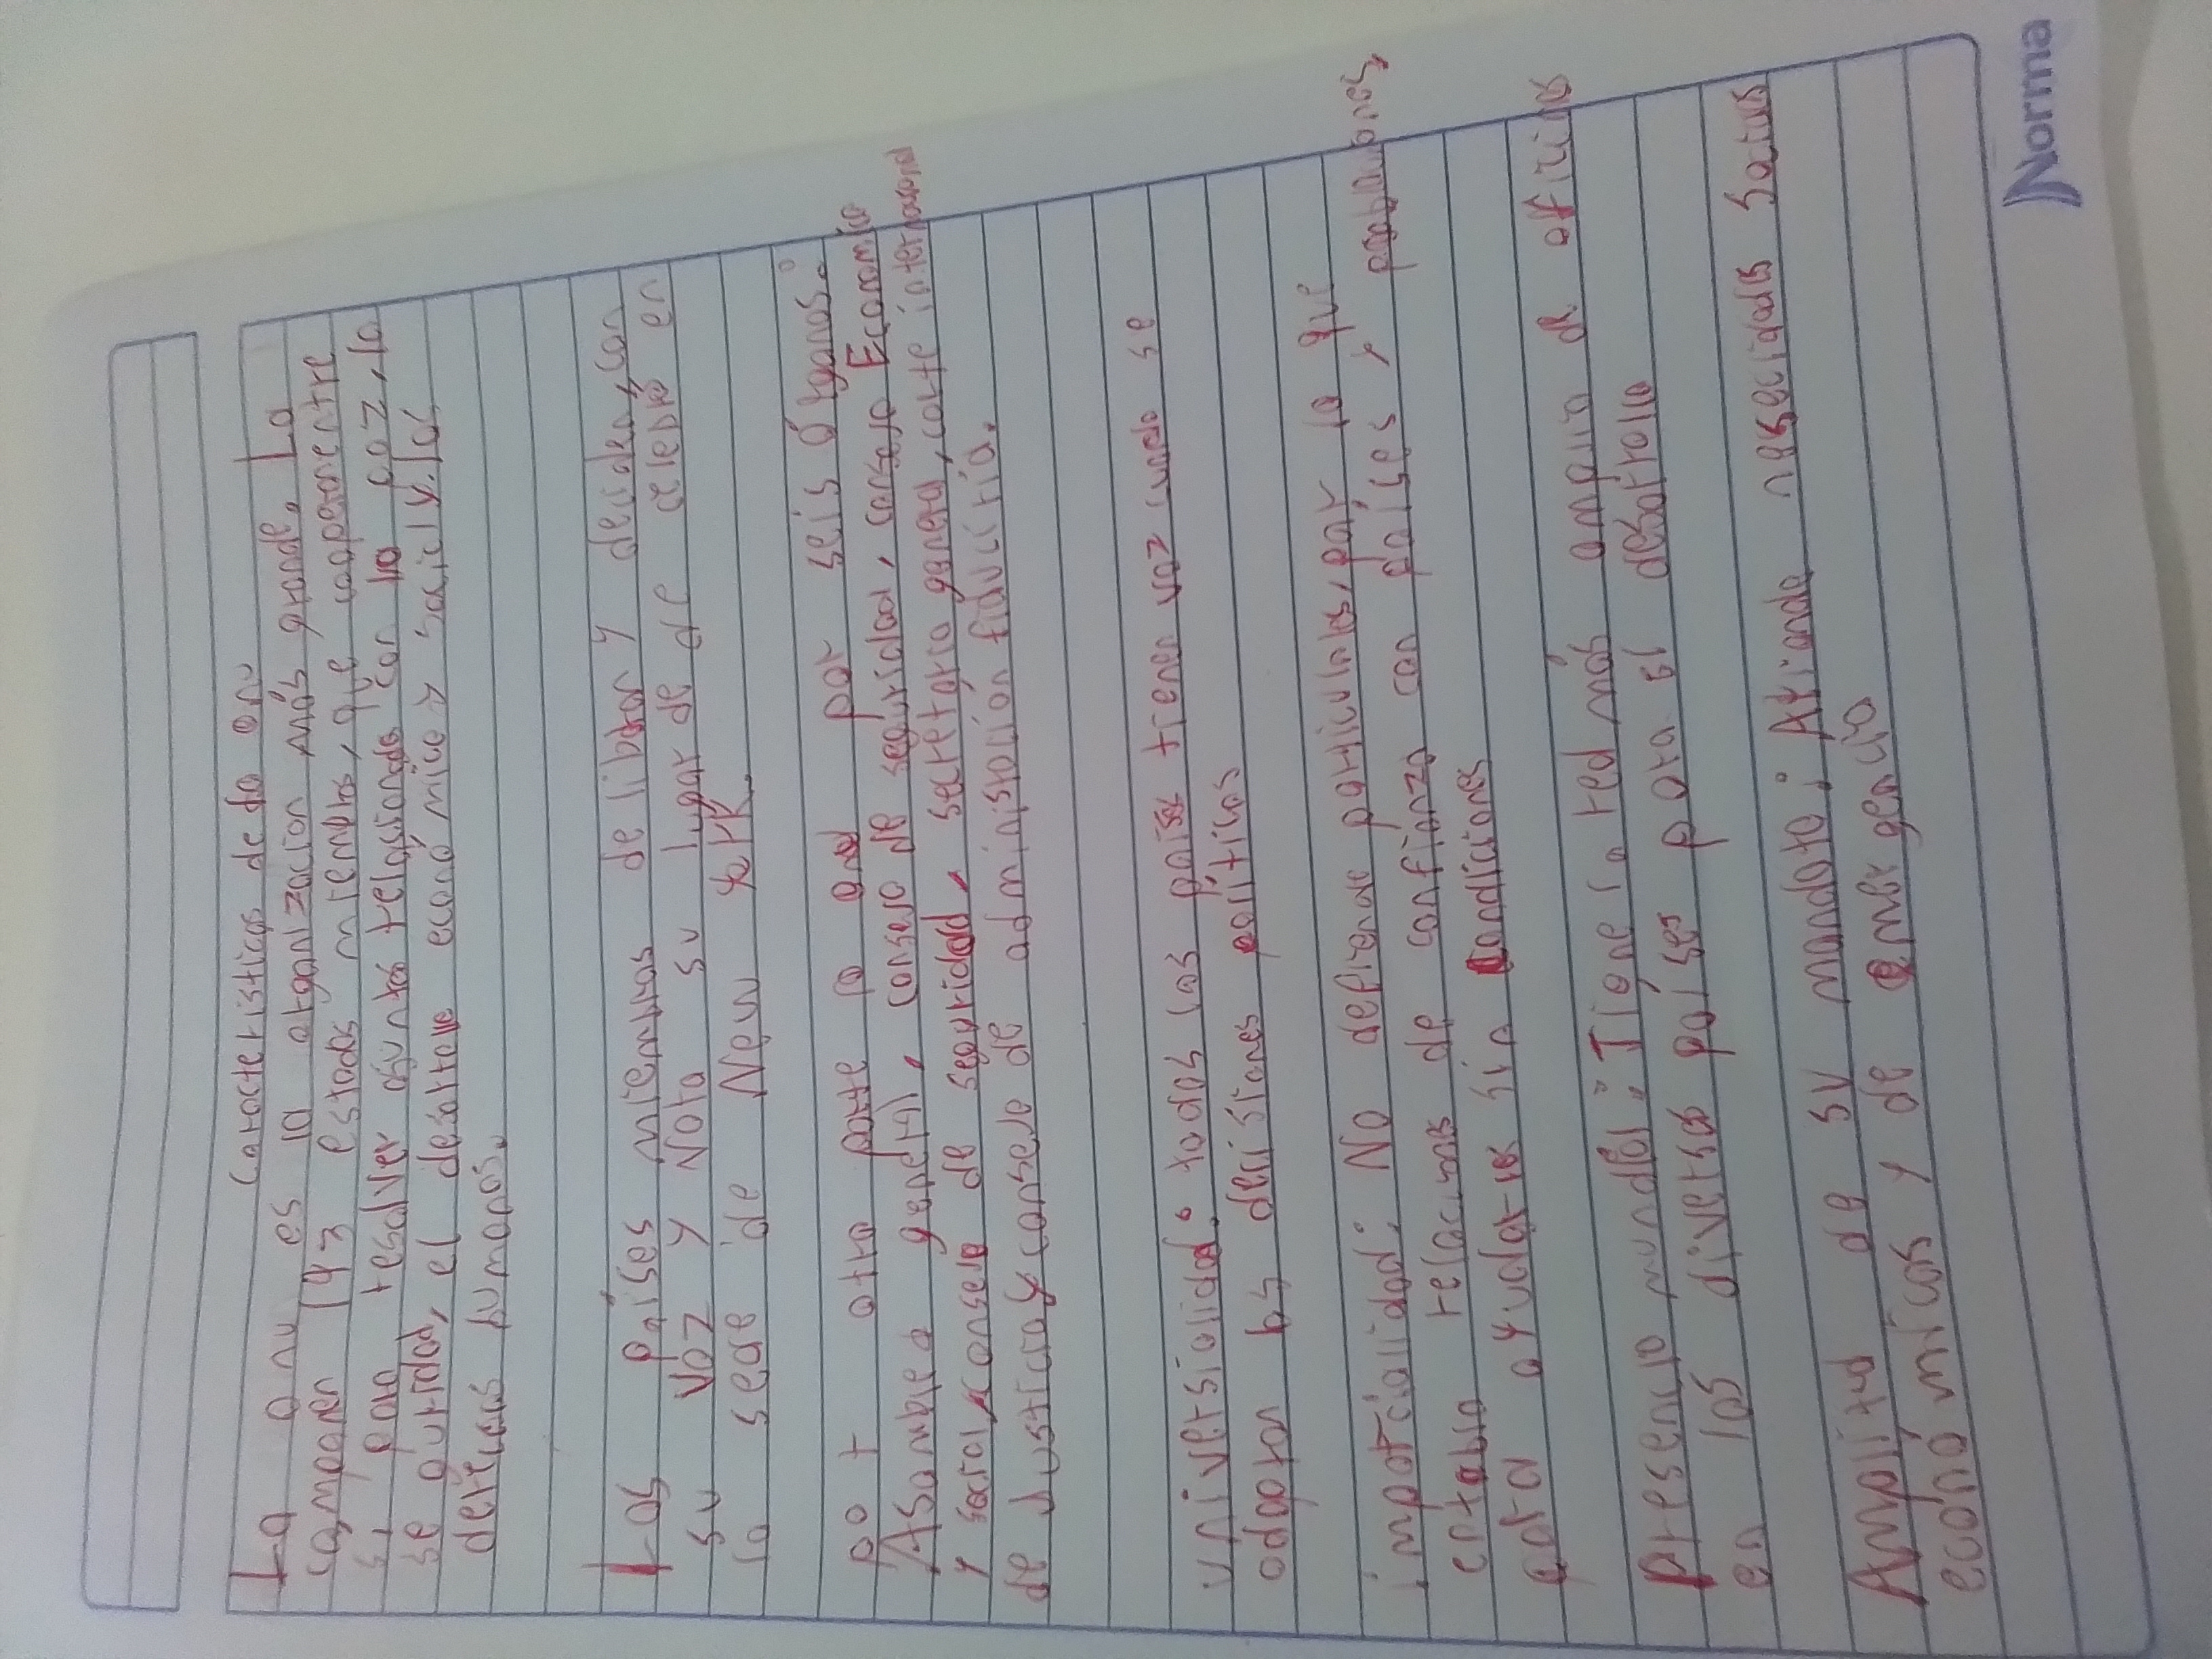 Características de la onu
La onu es la organización más grande. La
componen 193 estados miembros, que cooperan entre
sí para resolver asuntos relasionads con la paz, la
seguridad, el desarrollo económico y social y. los
derechos humanos.
Los países miembros deliberan y deciden, con
su voz y Nota su lugar de de celebra en
la sede de New York.
por otra parte la onu por seis Órganos:
Asamblea general, consejo de seguridad, consejo Económico
y social, consejo de seguridad, secretario general, corte internacional
de Justicia y consejo de administración fiducsria.
universialidad: todos las paíse tienen voz cundo se
adoptan las desisiones políticas
imparcialidad: No defiende particulales, por lo que
entabla relacions de confianza con países, poblaniones,
para ayudar-les sin condiciones
Presencia mundial: Tiene la red más amplia de oficinas
en los diversos países para el desarrollo
Amplitud de su mandato: Atiende nesecidades Socias
económicas y de emergencia
Norma